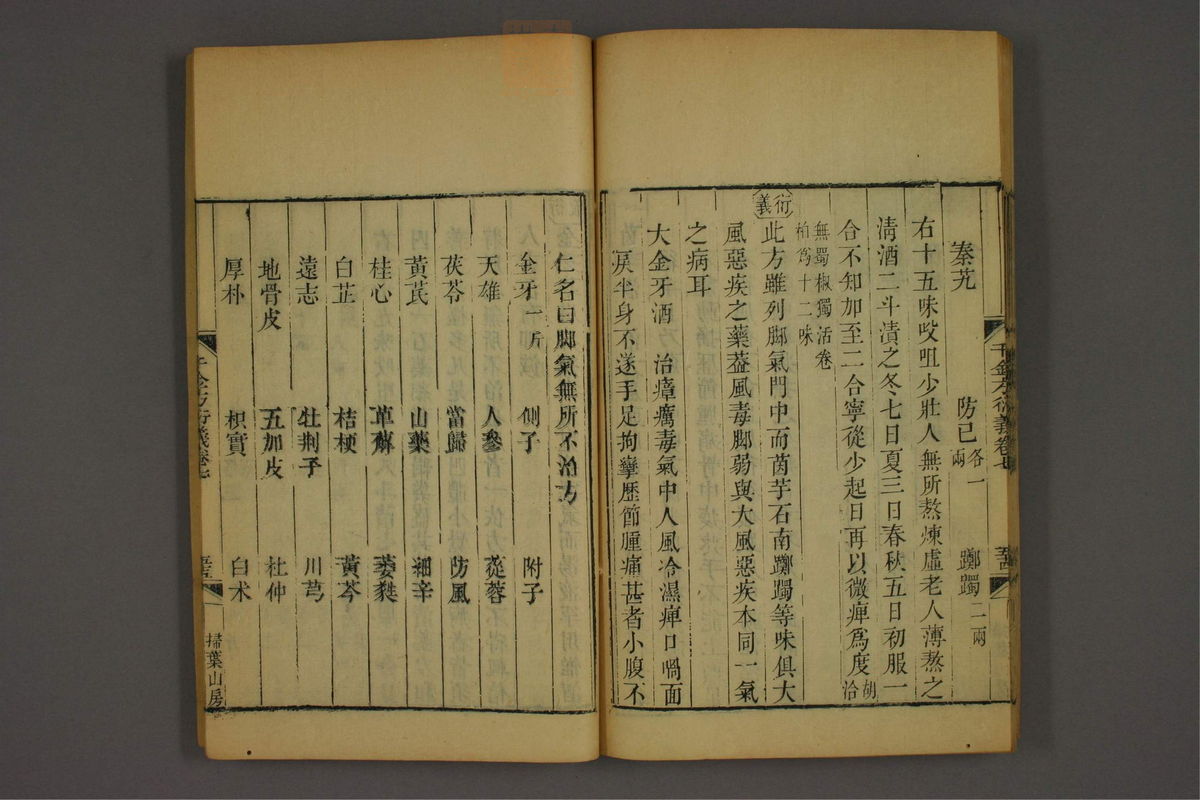 秦艽　防己各一兩　躑躅二兩
右十五味㕮咀少壯人無所熬煉虛老人薄熬之
淸酒二斗漬之冬七日夏三日春秋五日初服一
合不知加至二合寧從少起日再以微痺爲度胡洽
無蜀椒獨活卷
柏爲十二味
衍義
此方雖列脚氣門中而茵芋石南躑躅等味俱大
風惡疾之藥葢風毒脚弱與大風惡疾本同一氣
之病耳
大金牙酒　治瘴癘毒氣中人風冷濕痺口喎面
戾半身不遂手足拘攣歷節腫痛甚者小腹不
千金方衍義卷七
仁名曰脚氣無所不治方
金牙一斤　側子　附子
天雄　人參　蓯蓉
茯苓　當歸　防風
黃芪　山藥　細辛
桂心　萆薢　葳蕤
白芷　桔梗　黃芩
遠志　牡荆子　川芎
地骨皮　五加皮　杜仲
厚朴　枳實　白朮
千金方衍義卷七
掃葉山房